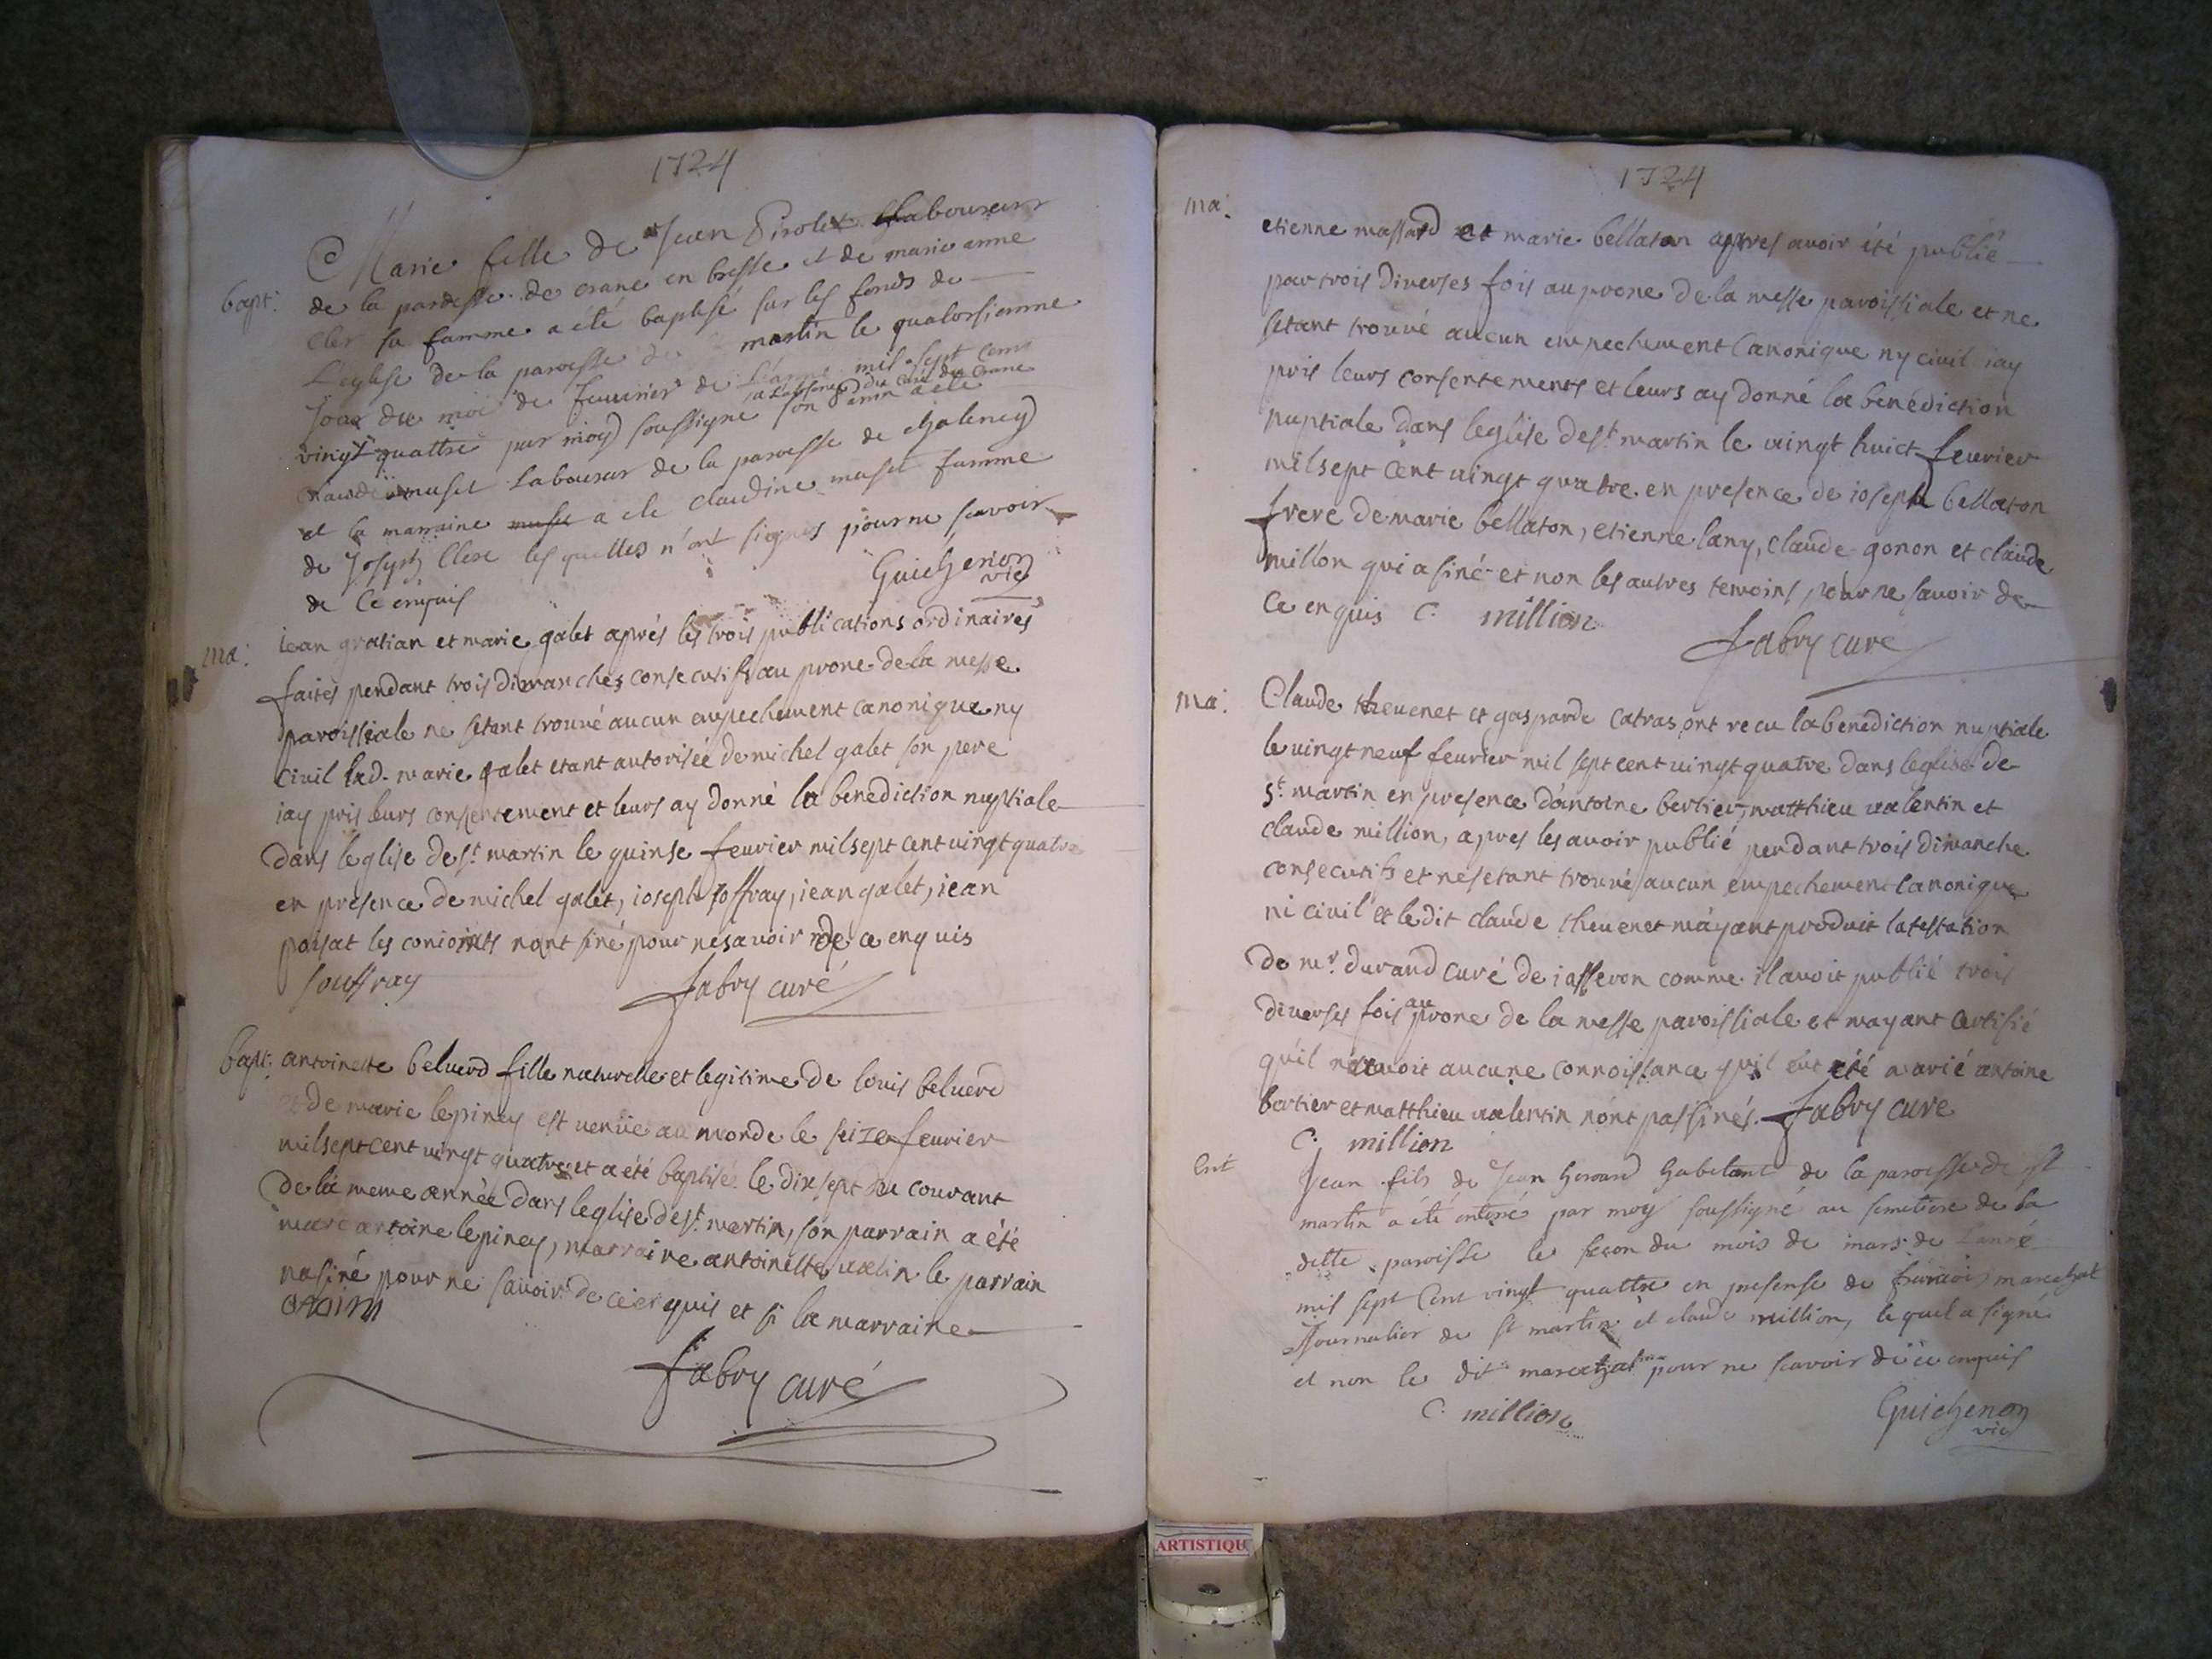 1724
bapt:
Marie fille de Jean Pirolet Laboureur
de la paroesse de crane en bresse et de marie anne
Cler sa famme a été baptisé sur les fonds de
L'eglise de la paroesse de martin le quatorsiemme
Jour du moi de feuurier de L'anné mil sept cent
a L'absence du curé du Crane
vingt quattre par moy soussigné son parin a été
muset Laboureur de la paroesse de chaleney
et la marraine a ele claudine muset famme
de Joseph Clerc lesquelles n'ont signés pour ne scavoir
de ce enquis Guichenon
vic
ma:
iean gratian et marie galet aprés les trois publications ordinaires
faites pendant trois dimanches consecutifs au prone de la messe
paroissiale ne setant trouvé aucun empechement canonique ny
civil lad. marie galet etant autorisée de michel galet son pere
iay pris leurs consentement et leurs ay donné la benediction nuptiale
dans leglise de st martin le quinse feurier mil sept cent vingt quatre
en presence de michel galet, ioseph joffray, iean galet, iean
poisat les conioints nont siné pour ne savoir de ce enquis
Jouffray fabry curé
bapt:
antoinette beluerd fille naturelle et legitime de louis beluerd
et de marie lepiney est venüe au monde le seize feurier
mil sept cent vingt quatre et a été baptisée le dix sept du courant
de la meme année dans leglise de st. martin, son parrain a été
marc antoine lepiney, marraine antoinette valin le parrain
na siné pour ne savoir de ce enquis et si la marraine
fabry curé
1724
ma:
etienne massard et marie bellaton apres avoir été publié
par trois diverses fois au prone de la messe paroissiale et ne
setant trouvé aucun empechement canonique ny civil iay
pris leurs consentements et leurs ay donné la benédiction
nuptiale dans leglise de st. martin le vingt huict feurier
mil sept cent vingt quatre. en presence de ioseph bellaton
frere de marie bellaton, etienne lany, claude gonon et claude
millon qui a siné et non les autres temoins pour ne savoir de
ce enquis C. million
fabry curé
ma:
Claude theuenet et gasparde catras ont recu la benediction nuptiale
le vingt neuf feurier mil sept cent vingt quatre dans leglise de
st. martin en presence d'antoine bertier, matthieu valentin et
claude million, apres les avoir publié pendant trois dimanche
consecutifs et ne setant trouvé aucun empechement canonique
ni civil et ledit claude theuenet m'ayant produit latestation
de mr. durand curé de iasseron comme il avoit publié trois
diverses fois au prone de la messe paroissiale et mayant certifié
qu'il n'avoit aucune connoissance quil eut été marié antoine
bertier et matthieu valentin n'ont pas sinés. fabry curé
C. million
Ent
Jean fils de Jean habitant de la paroesse de st
martin a été entéré par moy soussigné au semetiere de la
ditte paroisse le secon du mois de mars de L'anné
mil sept Cent vingt quattre en presense de francois marechal
Journalier de st martin et claude million, lequel a signé
et non le dit marechal pour ne scavoir de ce enquis
C. million Guichenon
vic
ARTISTIQU